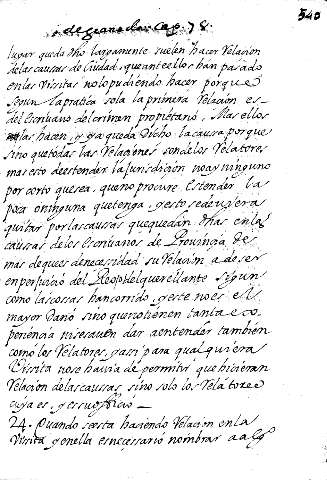 540
de granada. Cap. 78.
lugar queda dho largamente suelen hacer Relacion
delas causas de Ciudad, que ante ellos han pasado
en las Visitas no lo pudiendo hacer porque
segun la pratica sola la primera Relacion es
del Escriuano del crimen propietario, Mas ellos
las hacen, y ya queda Dicho la causa porque
sino que todas las Relaciones son delos Relatores
mas esto de estender la Jurisdicion no ay ninguno
por corto que sea, que no procure estender la
poca o ninguna que tenga, y esto se deuiera
quitar por las causas que quedan dhas en las
causas de los Escriuanos de Prouincia de
mas de que es de necesidad su Relacion a de ser
en perjuicio del Reo o del querellante segun
como las cosas han corrido, y este no es el
mayor Daño sino que cometieren tanta
periencia ni se sauen dar a entender tambien
como los Relatores, y asi para qualquiera
Visita no se hauia de permitir que hicieran
Relacion de las causas sino solo los Relatores
cuya es, y es su officio
24. Quando se esta haciendo Relacion en la
Visita y en ella es necessario nombrar a alg